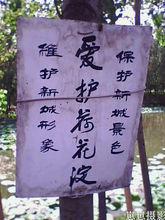 保护新城景色
爱护荷花淀
维护新城形象